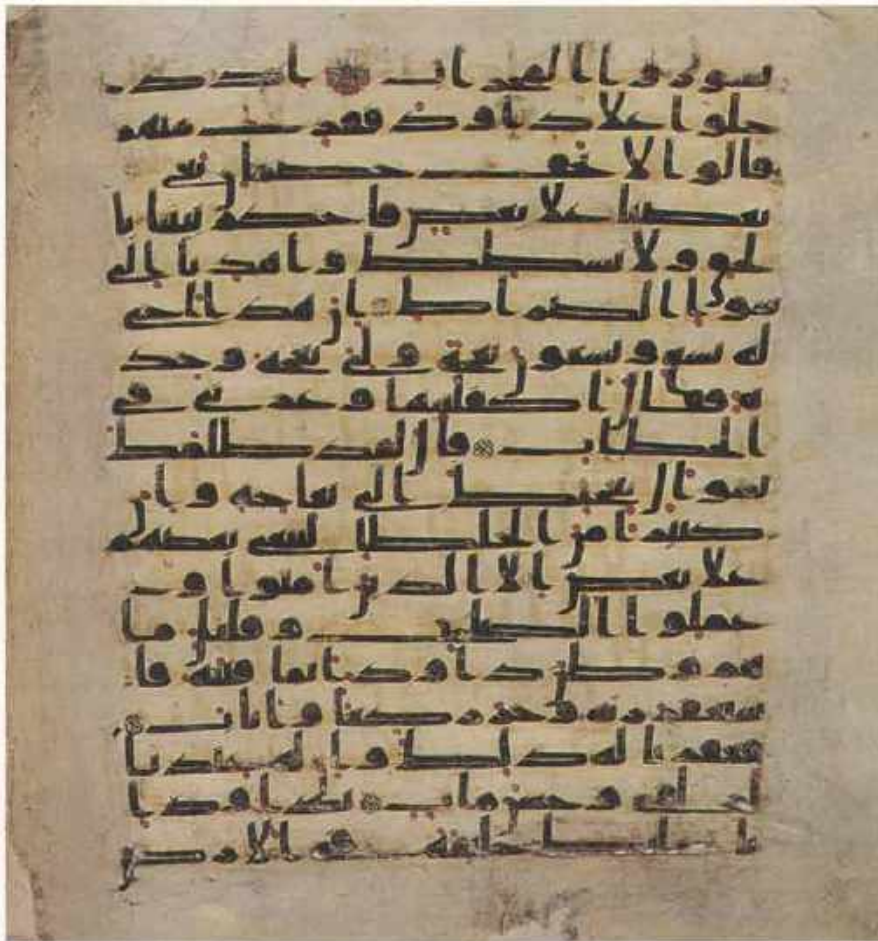 سوروا المحراب اذ د
خلوا علا داود ففزع منهم
قالوا لا تخف خصمن بغى
بعضنا علا بعض فاحكم بيننا با
لحق ولا تشطط واهدنا الى
سوا الصراط ان هذا اخى
له تسع وتسعون نعجة ولى نعجة وحد
ة فقال اكفلنيها وعزنى فى
الخطاب قال لقد ظلمك
بسوال نعجتك الى نعاجه وان
كثيرا من الخلطا ليبغى بعضهم
علا بعض الا الذين امنوا و
عملوا الصلحت وقليل ما
هم وظن داود انما فتنه فا
ستغفر ربه وخر ركعا واناب
فغفرنا له ذلك وان له عندنا
لزلفى وحسن ماب يداود ا
نا جعلنك خليفة فى الارض